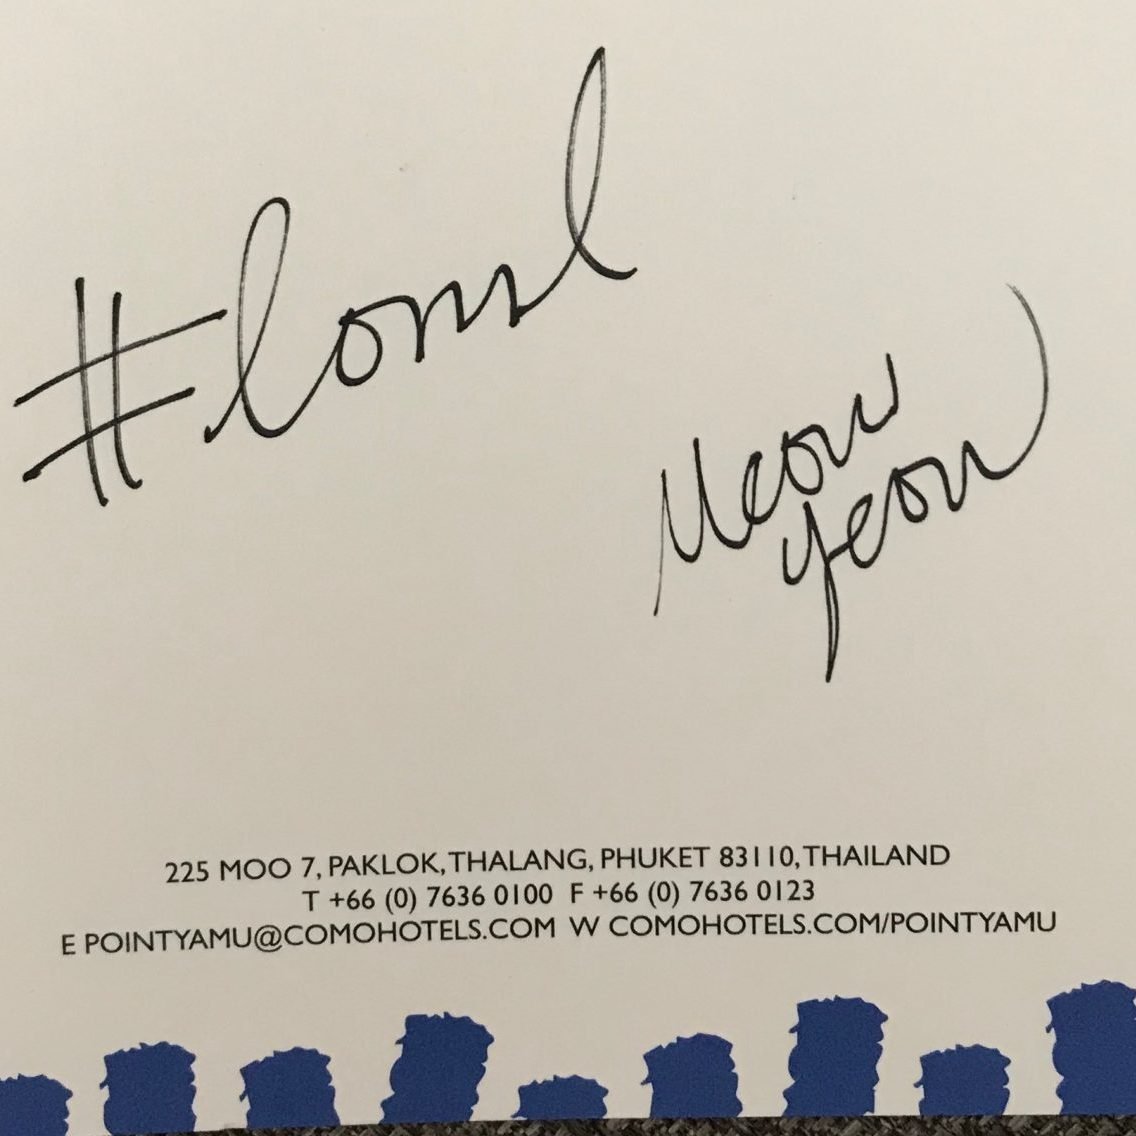 #loml
Meow
Yeow
225 MOO 7, PAKLOK, THALANG, PHUKET 83110, THAILAND
T +66 (0) 7636 0100 F +66 (0) 7636 0123
E POINTYAMU@COMOHOTELS.COM W COMOHOTELS.COM/POINTYAMU